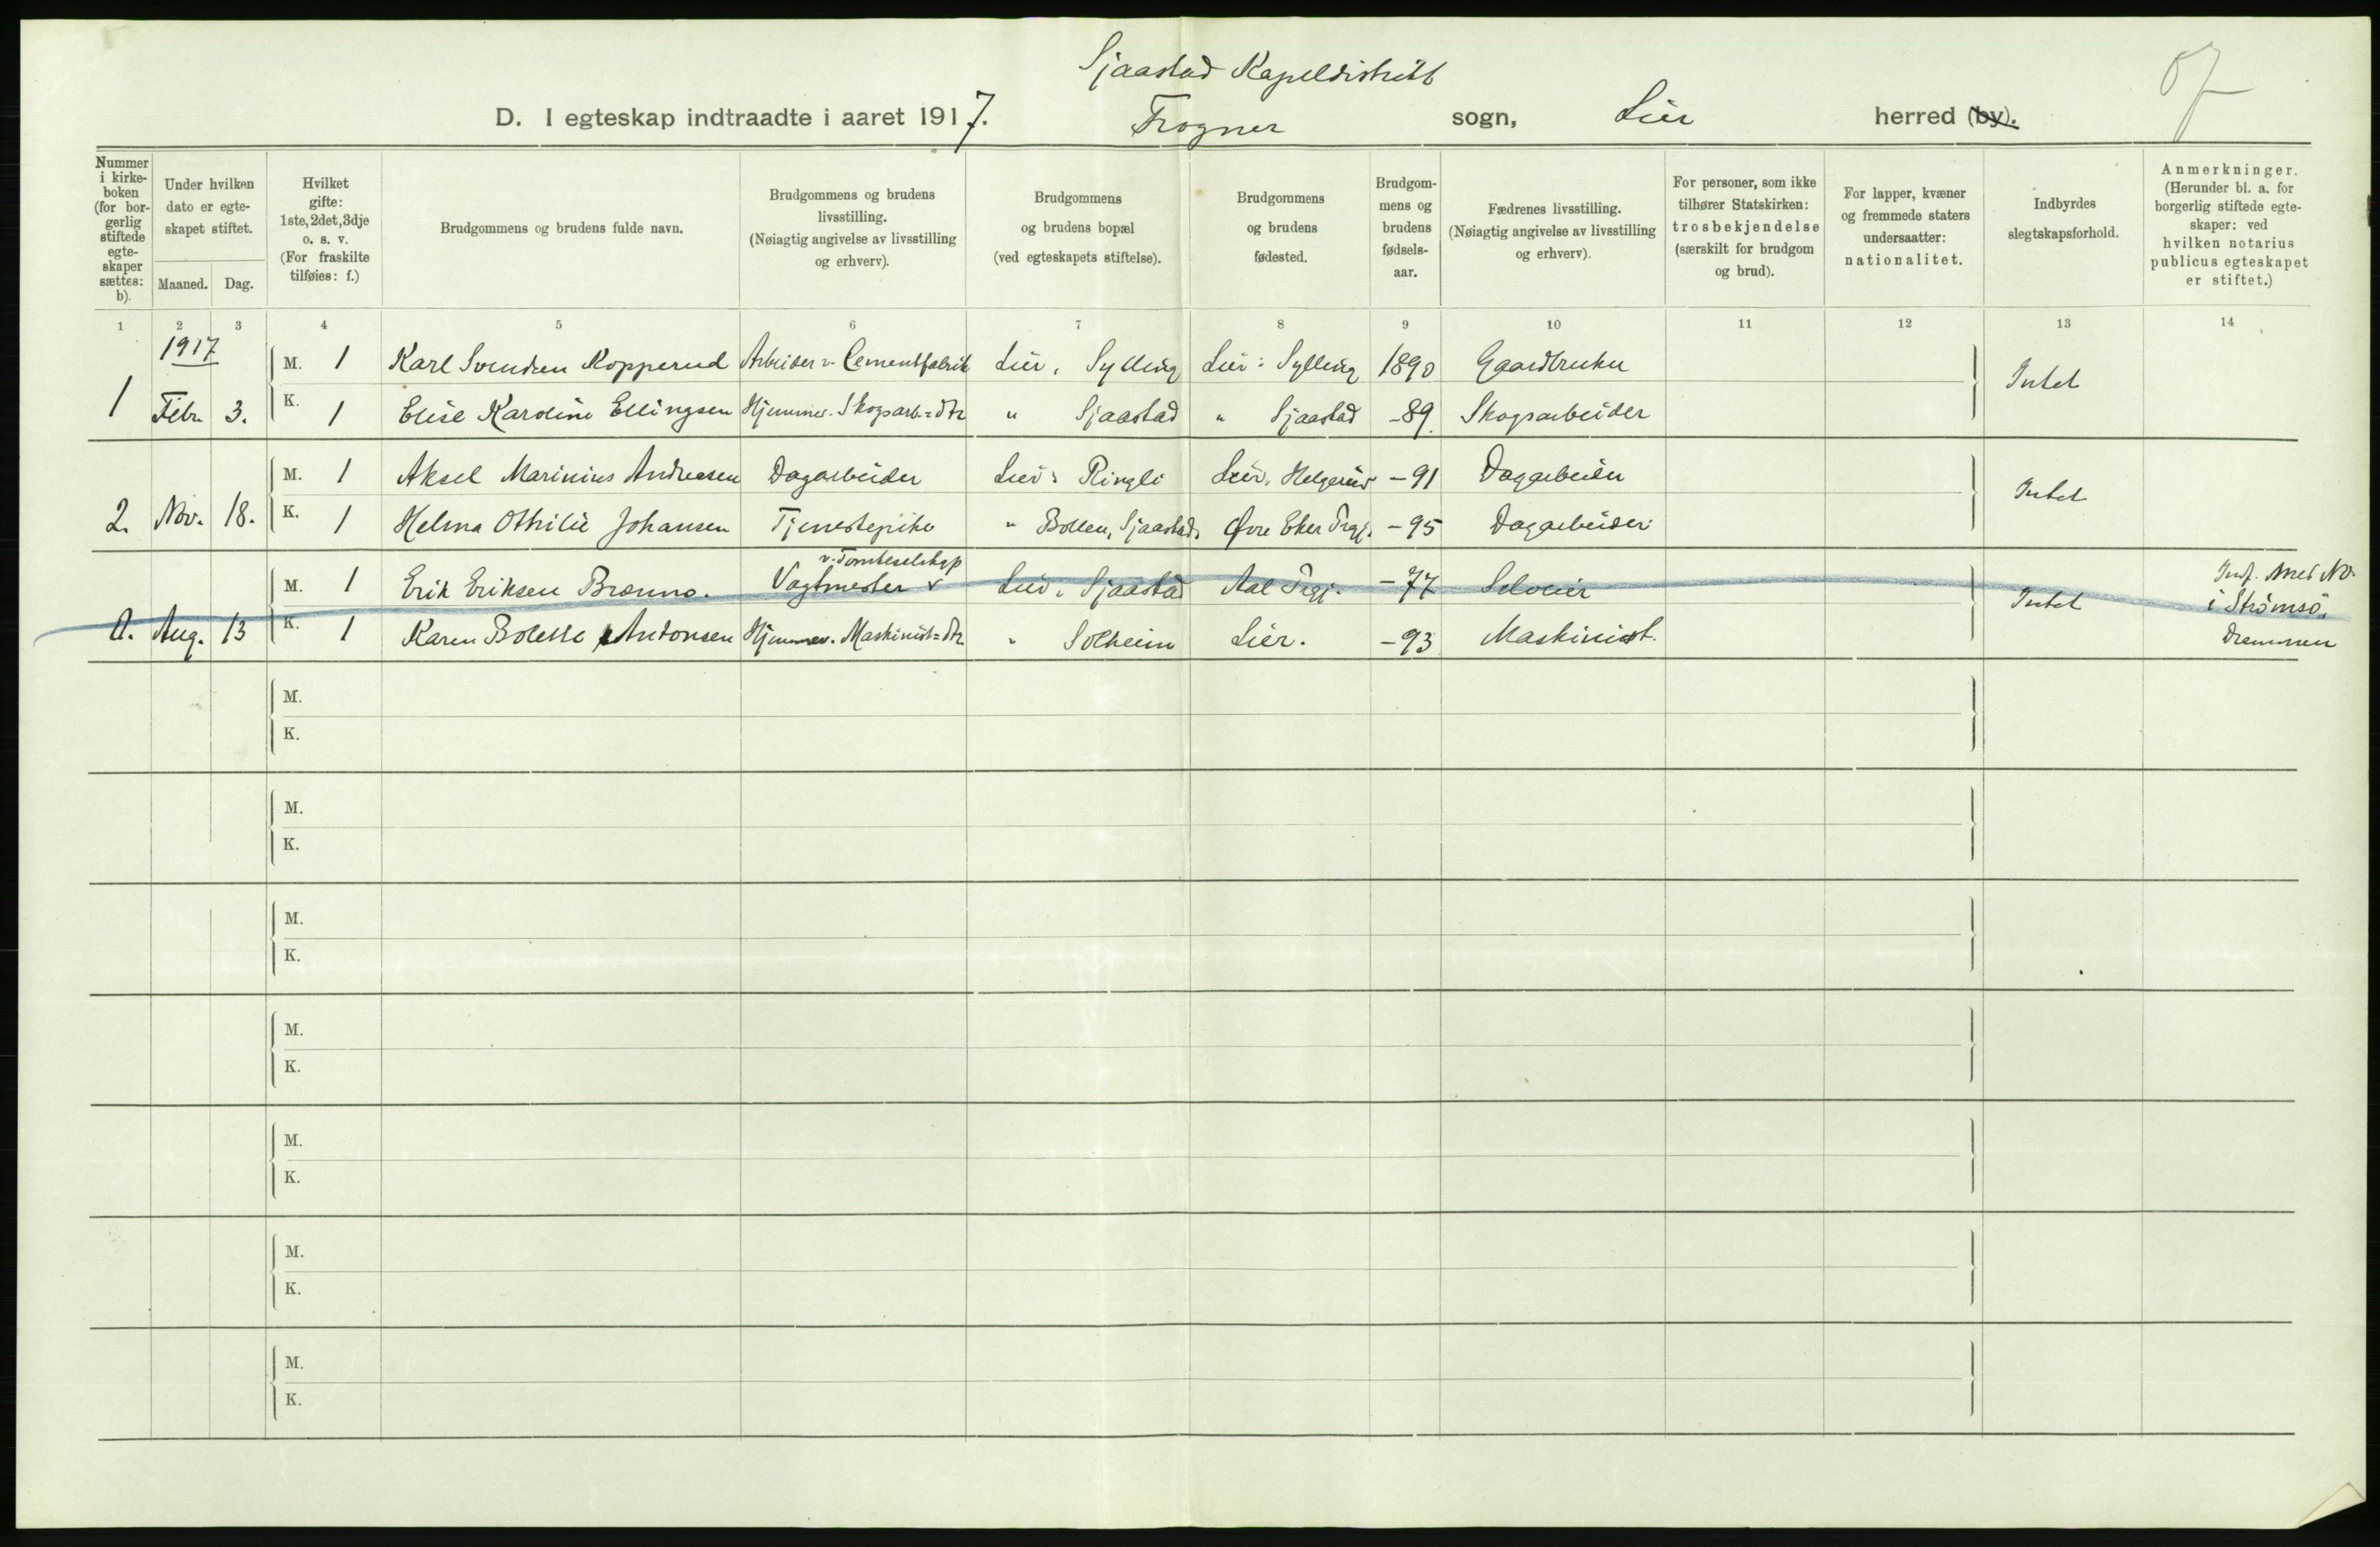 Sjaastad Kapeldistrikt
D. I egteskap indtraadte i aaret 1917. Frogner sogn, Lier herred (by).
Nummer i kirkeboken (for borgerlig stiftede egteskaper sættes: b).
Under hvilken dato er egteskapet stiftet.
Maaned. Dag.
Hvilket gifte: 1ste, 2det, 3dje o. s. v. (For fraskilte tilføies: f.)
Brudgommens og brudens fulde navn.
Brudgommens og brudens livsstilling. (Nøiagtig angivelse av livsstilling og erhverv).
Brudgommens og brudens bopæl (ved egteskapets stiftelse).
Brudgommens og brudens fødested.
Brudgommens og brudens fødselsaar.
Fædrenes livsstilling. (Nøiagtig angivelse av livsstilling og erhverv).
For personer, som ikke tilhører Statskirken: trosbekjendelse (særskilt for brudgom og brud).
For lapper, kvæner og fremmede staters undersaatter: nationalitet.
Indbyrdes slegtskapsforhold.
Anmerkninger. (Herunder bl. a. for borgerlig stiftede egteskaper: ved hvilken notarius publicus egteskapet er stiftet.)
1 2 3 4 5 6 7 8 9 10 11 12 13 14
1917
M. 1 Karl Svendsen Kopperud Arbeider v. Cementfabrik Lier, Sylling Lier: Sylling 1890 Gaardbruker Intet
1 Febr. 3. K. 1 Elise Karoline Ellingsen Hjemmev. Skogsarb=dtr " Sjaastad " Sjaastad -89. Skogsarbeider
M. 1 Aksel Marinius Andresen Dagarbeider Lier: Ringli Lier, -91 Dagarbeider Intet
2. Nov. 18. K. 1 Helma Othilie Johansen Tjenestepike " Bollen, Sjaastad. Øvre Eker Prgj. -95 Dagarbeider
v. Tomteselskap
M. 1 Erik Eriksen Brænno. Vagtmester v Lier, Sjaastad Aal Prgj. -77 Selveier Intet Indf. med No.
i Strömsö.
0. Aug. 13 K. 1 Karen Bolette Antonsen Hjemmev. Maskinist=dtr " Solheim Lier. -93 Maskinist. Drammen
M.
K.
M.
K.
M.
K.
M.
K.
M.
K.
M.
K.
M.
K.